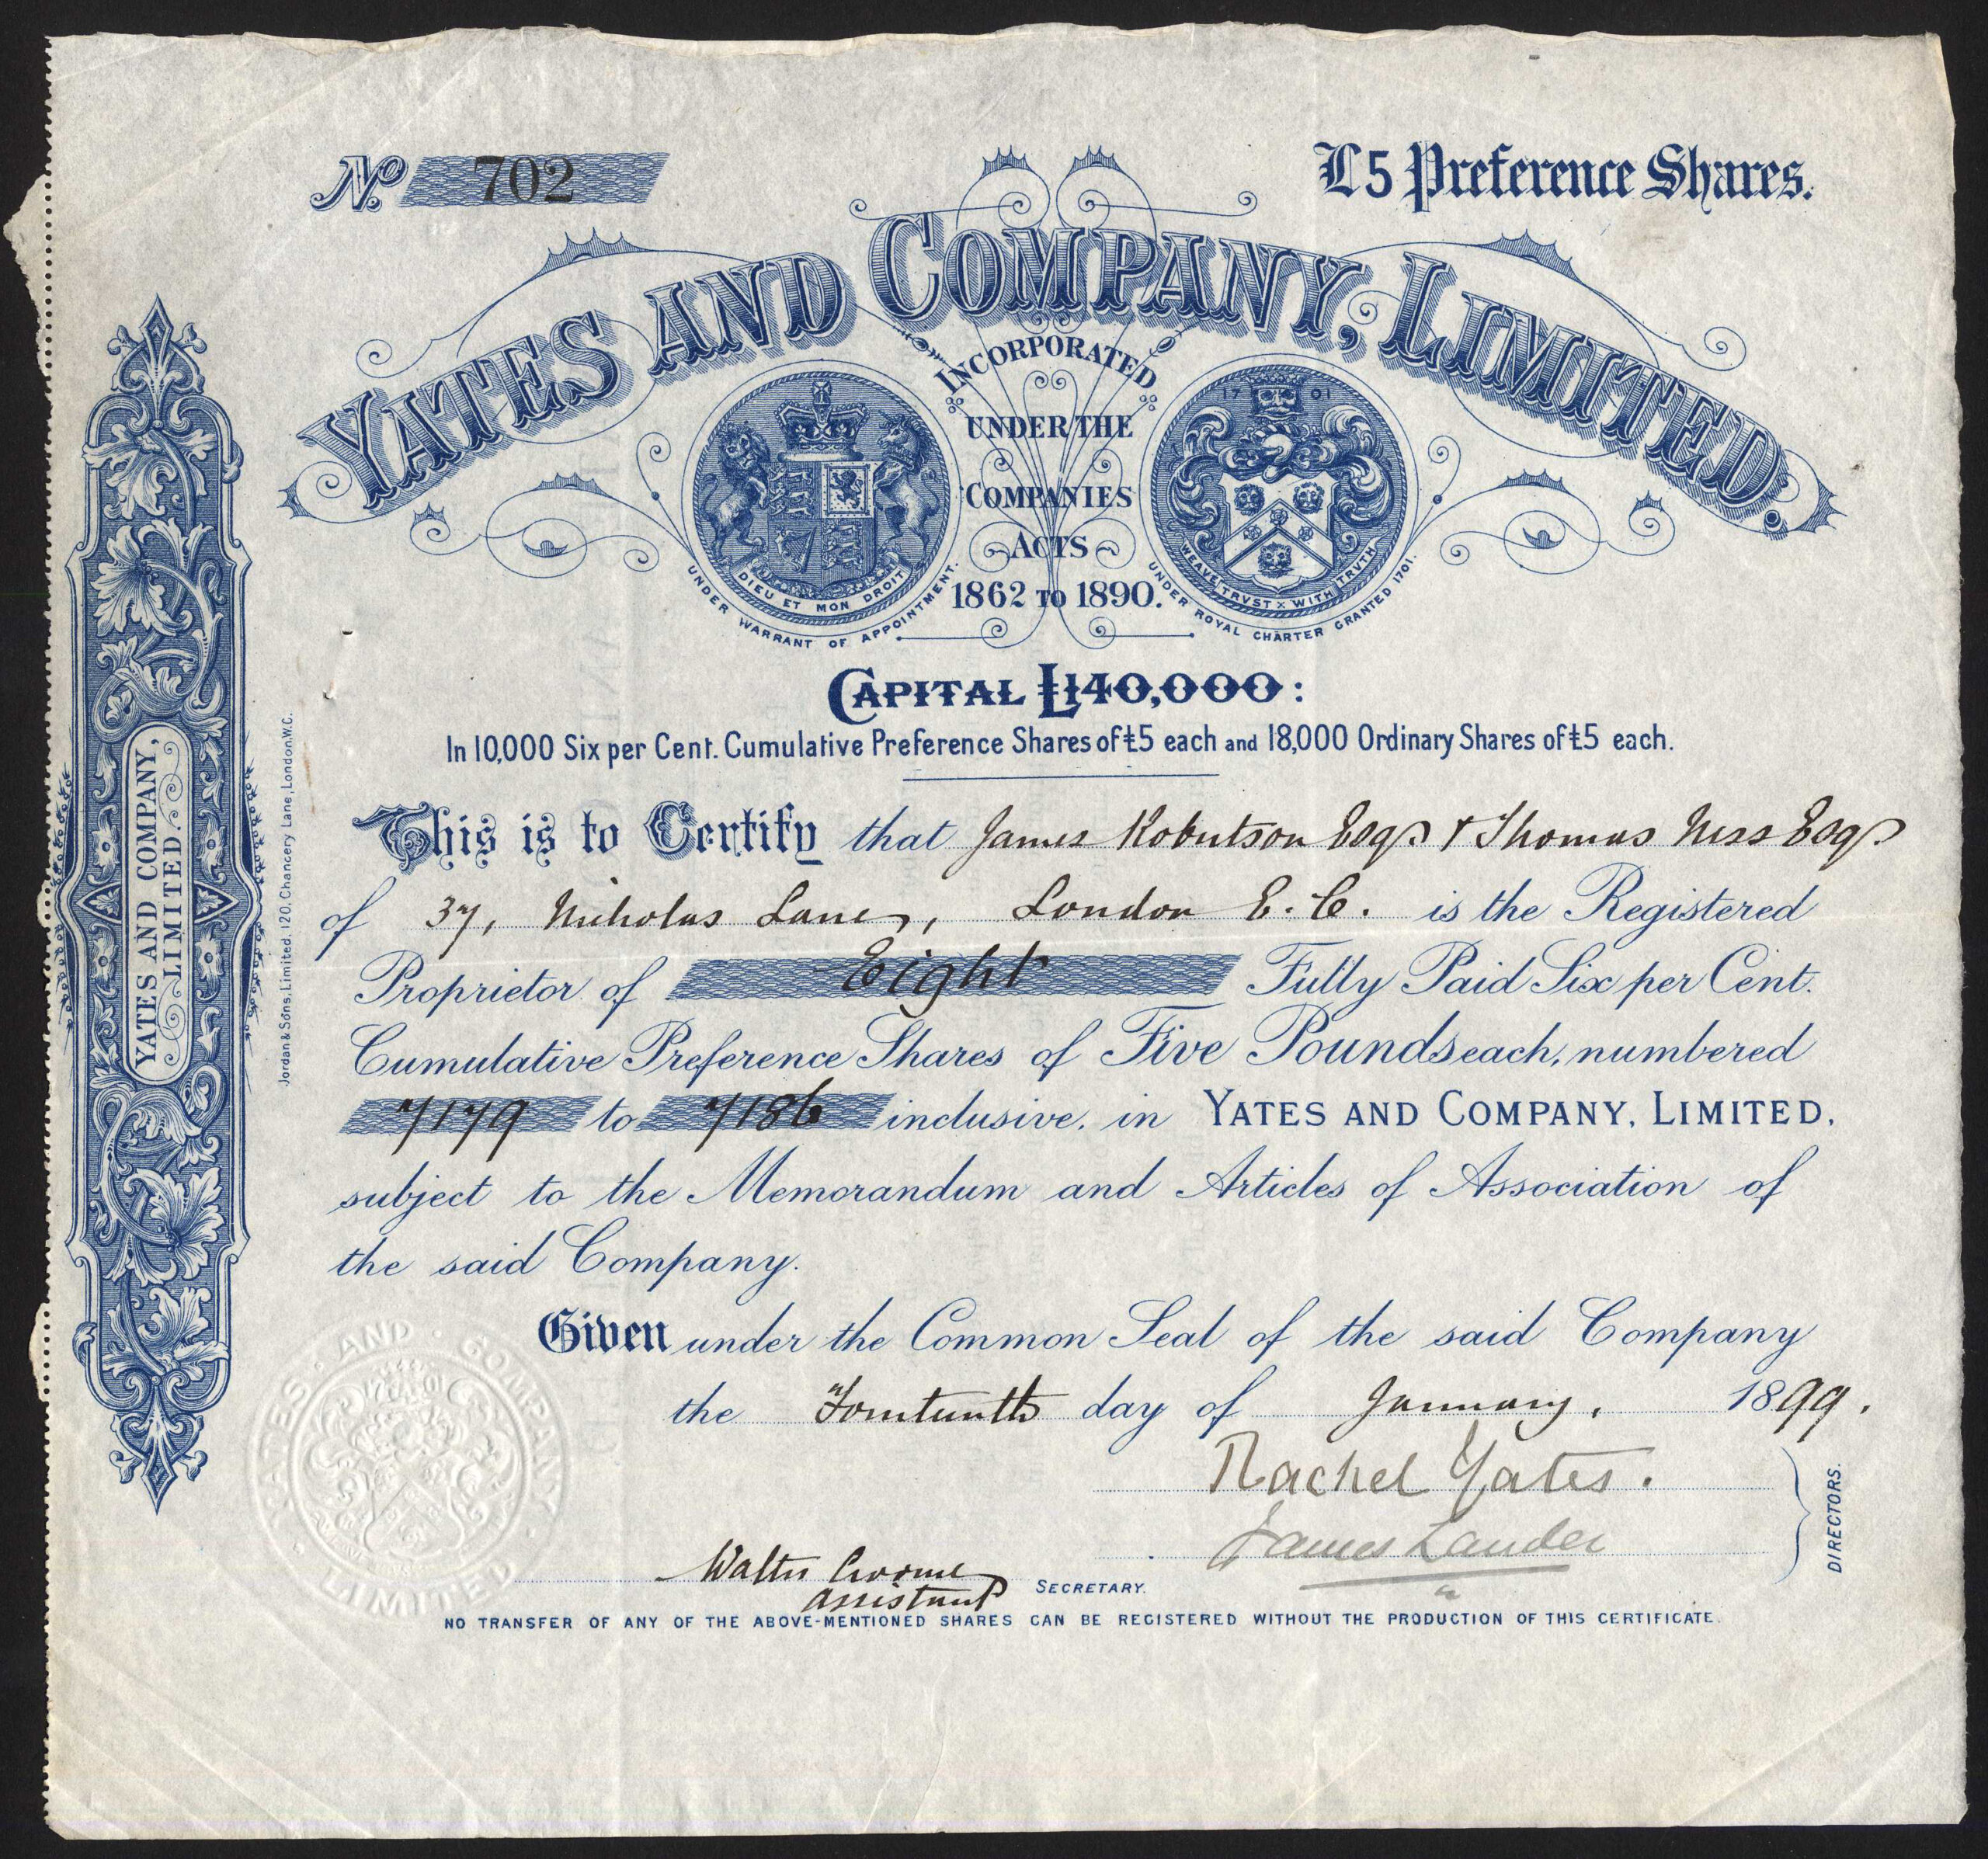 No. 702
£5 Preference Shares.
YATES AND COMPANY, LIMITED.
INCORPORATED
UNDER THE
COMPANIES
ACTS
1862 TO 1890.
DIEU ET MON DROIT
UNDER WARRANT OF APPOINTMENT.
17 01
WEAVE TRVST WITH TRVTH
UNDER ROYAL CHARTER GRANTED 1701.
CAPITAL £140,000:
In 10,000 Six per Cent. Cumulative Preference Shares of £5 each and 18,000 Ordinary Shares of £5 each.
This is to Certify that James Robertson Esqr & Thomas Ness Esqr
of 37, Nicholas Lane, London E.C. is the Registered
Proprietor of Eight Fully Paid Six per Cent.
Cumulative Preference Shares of Five Pounds each, numbered
7179 to 7186 inclusive, in YATES AND COMPANY, LIMITED,
subject to the Memorandum and Articles of Association of
the said Company.
Given under the Common Seal of the said Company
the Fourteenth day of January, 1899.
Rachel Yates.
James Lauder
DIRECTORS.
Walter Croome
Assistant SECRETARY.
NO TRANSFER OF ANY OF THE ABOVE-MENTIONED SHARES CAN BE REGISTERED WITHOUT THE PRODUCTION OF THIS CERTIFICATE.
YATES AND COMPANY,
LIMITED.
Jordan & Sons, Limited, 120, Chancery Lane, London, W.C.
YATES · AND · COMPANY · LIMITED
1701